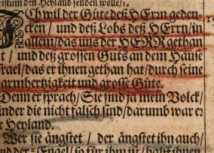 Jch wil der Güte deß HErrn geden-
cken / und deß Lobs deß HErrn / in
allem / das uns der HERR gethan
hat / und deß grossen Guts an dem Hause
Jsrael / das er ihnen gethan hat / durch seine
Barmhertzigkeit und grosse Güte.
Denn er sprach / Sie sind ja mein Volck /
Kinder die nicht falsch sind / darumb war er
ihr Heyland.
Wer sie ängstet / der ängstet ihn auch /